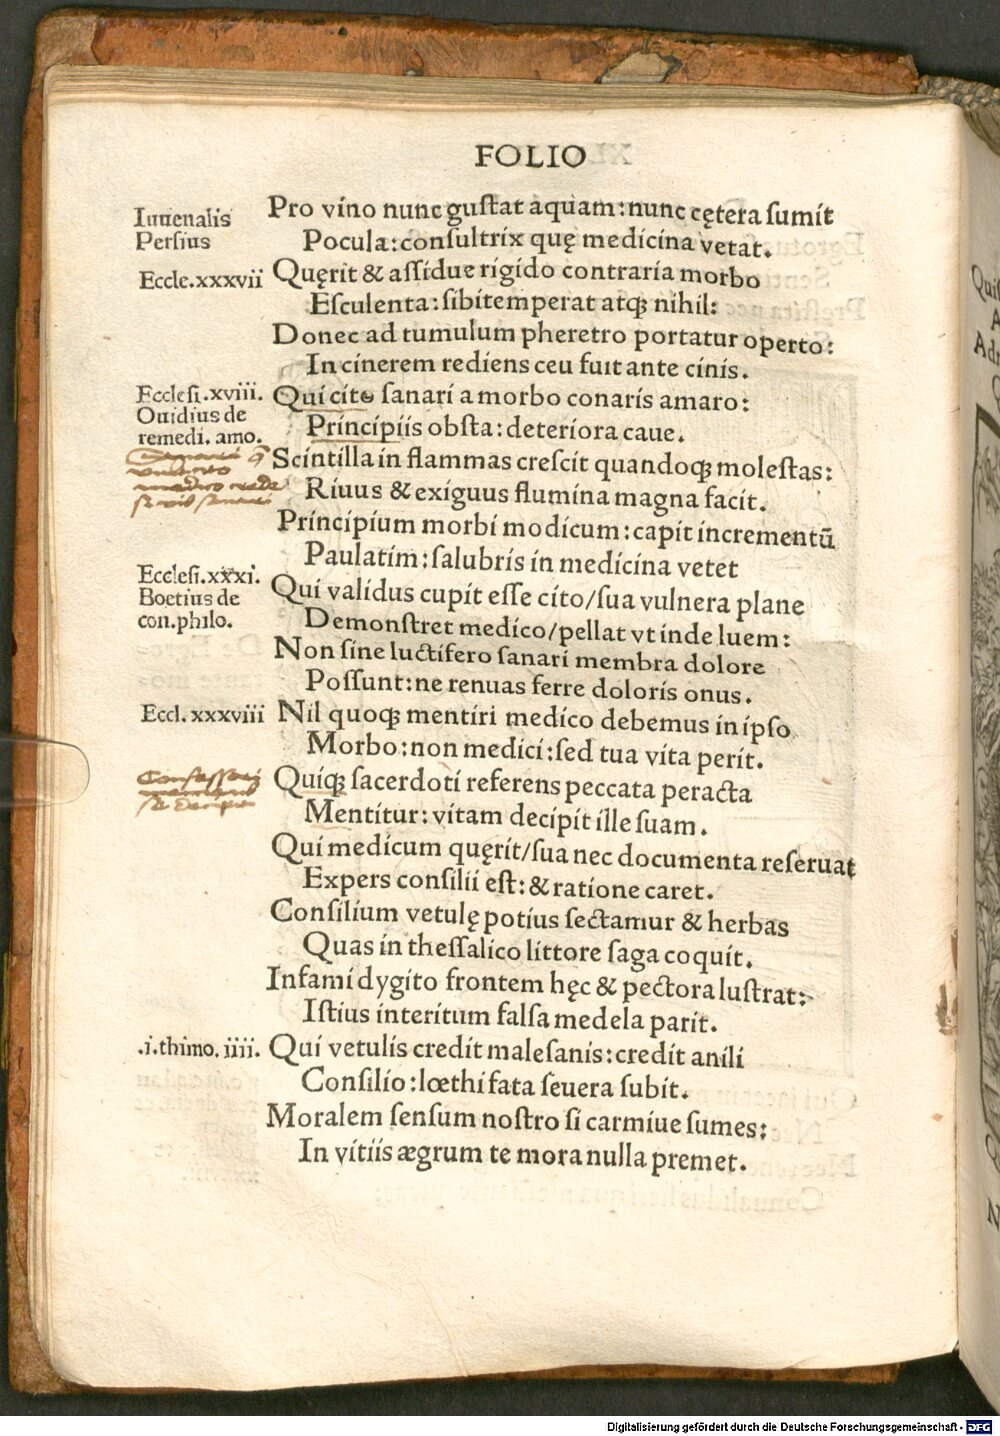 FOLIO
Iuuenalis
Persius
Eccle.xxxvii
Pro vino nunc gustat aquam:nunc cętera sumit
Pocula:consultrix quę medicina vetat.
Quęrit & assidue rigido contraria morbo
Esculenta:sibitemperat atqꝫ nihil:
Donec ad tumulum pheretro portatur operto:
In cinerem rediens ceu fuit ante cinis.
Ecclesi.xviii.
Ouidius de
remedi. amo.
Qui cito sanari a morbo conaris amaro:
Principiis obsta:deteriora caue.
Scintilla in flammas crescit quandoqꝫ molestas:
Riuus & exiguus flumina magna facit.
Principium morbi modicum:capit incrementū
Paulatim:salubris in medicina vetet
Ecclesi.xxxi.
Boetius de
con.philo.
Qui validus cupit esse cito/sua vulnera plane
Demonstret medico/pellat vt inde luem:
Non sine luctifero sanari membra dolore
Possunt:ne renuas ferre doloris onus.
Eccl. xxxviii
Nil quoqꝫ mentiri medico debemus in ipso
Morbo:non medici:sed tua vita perit.
Quiqꝫ sacerdoti referens peccata peracta
Mentitur:vitam decipit ille suam.
Qui medicum quęrit/sua nec documenta reseruat
Expers consilii est:& ratione caret.
Consilium vetulę potius sectamur & herbas
Quas in thessalico littore saga coquit.
Infami dygito frontem hęc & pectora lustrat:
Istius interitum falsa medela parit.
.i.thimo. iiii.
Qui vetulis credit malesanis:credit anili
Consilio:lœthi fata seuera subit.
Moralem sensum nostro si carmiue sumes:
In vitiis ægrum te mora nulla premet.
Digitalisierung gefördert durch die Deutsche Forschungsgemeinschaft - DFG